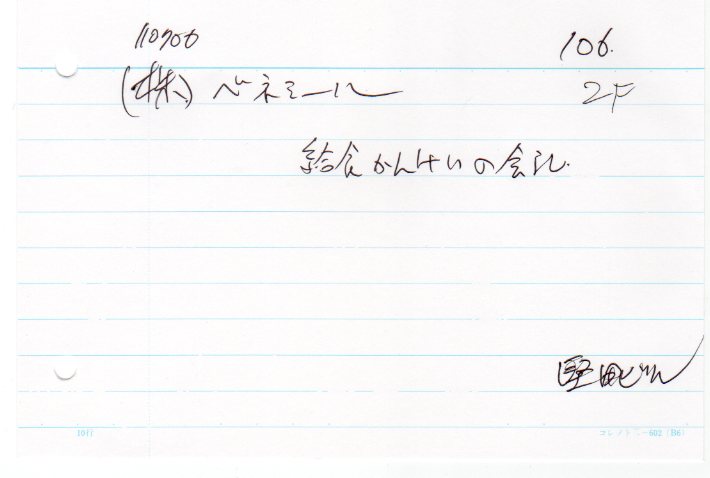 110706 106.
(株)ベネミール 2F
給食かんけいの会社.
堅田ビル
10行 コレクト 602 (B6)